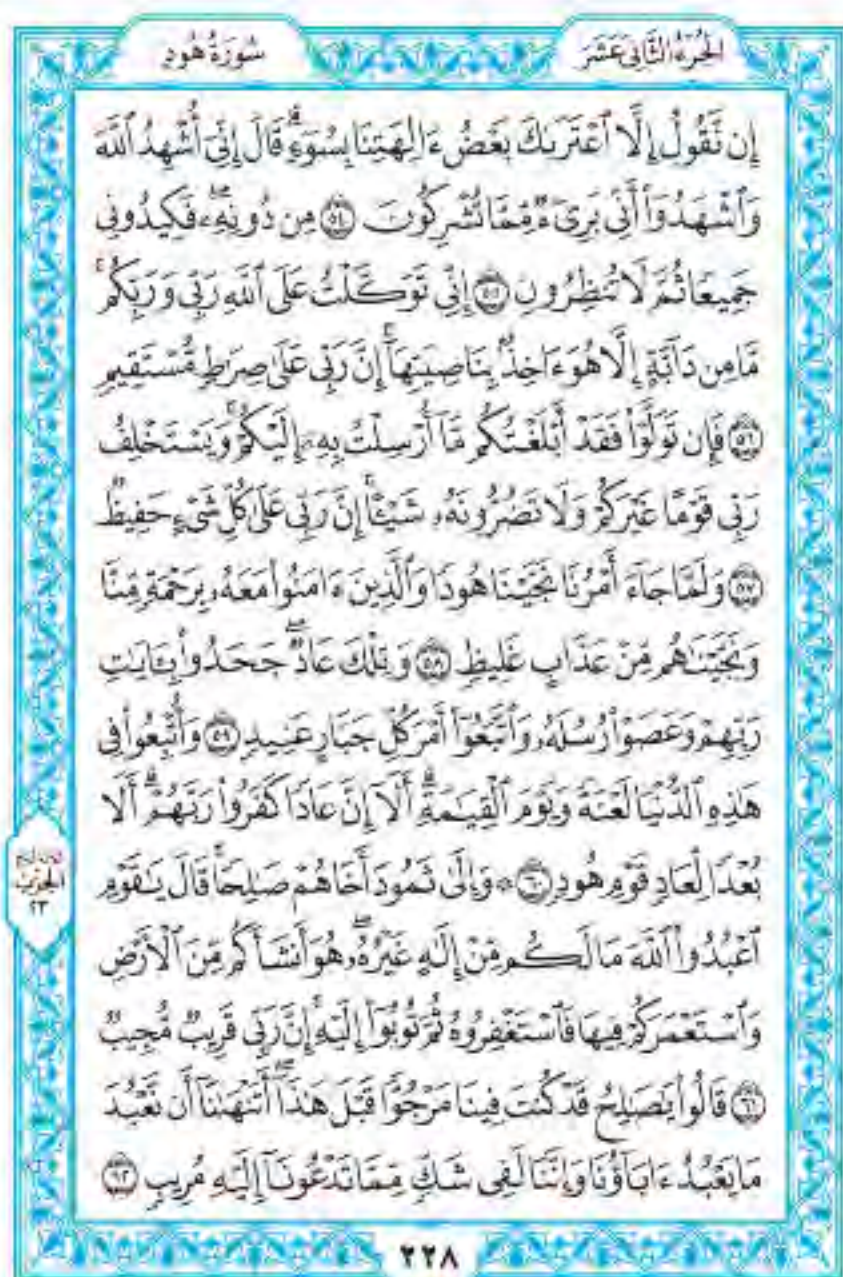 الجزء الثاني عشر
سورة هود
إِن نَّقُولُ إِلَّا ٱعْتَرَىٰكَ بَعْضُ ءَالِهَتِنَا بِسُوٓءٍۗ قَالَ إِنِّىٓ أُشْهِدُ ٱللَّهَ
وَٱشْهَدُوٓا۟ أَنِّى بَرِىٓءٌ مِّمَّا تُشْرِكُونَ ٥٤ مِن دُونِهِۦۖ فَكِيدُونِى
جَمِيعًا ثُمَّ لَا تُنظِرُونِ ٥٥ إِنِّى تَوَكَّلْتُ عَلَى ٱللَّهِ رَبِّى وَرَبِّكُمۚ
مَّا مِن دَآبَّةٍ إِلَّا هُوَ ءَاخِذٌۢ بِنَاصِيَتِهَآۚ إِنَّ رَبِّى عَلَىٰ صِرَٰطٍ مُّسْتَقِيمٍ
٥٦ فَإِن تَوَلَّوْا۟ فَقَدْ أَبْلَغْتُكُم مَّآ أُرْسِلْتُ بِهِۦٓ إِلَيْكُمْۚ وَيَسْتَخْلِفُ
رَبِّى قَوْمًا غَيْرَكُمْ وَلَا تَضُرُّونَهُۥ شَيْـًٔاۚ إِنَّ رَبِّى عَلَىٰ كُلِّ شَىْءٍ حَفِيظٌ
٥٧ وَلَمَّا جَآءَ أَمْرُنَا نَجَّيْنَا هُودًا وَٱلَّذِينَ ءَامَنُوا۟ مَعَهُۥ بِرَحْمَةٍ مِّنَّا
وَنَجَّيْنَٰهُم مِّنْ عَذَابٍ غَلِيظٍ ٥٨ وَتِلْكَ عَادٌۖ جَحَدُوا۟ بِـَٔايَٰتِ
رَبِّهِمْ وَعَصَوْا۟ رُسُلَهُۥ وَٱتَّبَعُوٓا۟ أَمْرَ كُلِّ جَبَّارٍ عَنِيدٍ ٥٩ وَأُتْبِعُوا۟ فِى
هَٰذِهِ ٱلدُّنْيَا لَعْنَةً وَيَوْمَ ٱلْقِيَٰمَةِۗ أَلَآ إِنَّ عَادًا كَفَرُوا۟ رَبَّهُمْۗ أَلَا
بُعْدًا لِّعَادٍ قَوْمِ هُودٍ ٦٠ ۞ وَإِلَىٰ ثَمُودَ أَخَاهُمْ صَٰلِحًاۚ قَالَ يَٰقَوْمِ
ٱعْبُدُوا۟ ٱللَّهَ مَا لَكُم مِّنْ إِلَٰهٍ غَيْرُهُۥۖ هُوَ أَنشَأَكُم مِّنَ ٱلْأَرْضِ
وَٱسْتَعْمَرَكُمْ فِيهَا فَٱسْتَغْفِرُوهُ ثُمَّ تُوبُوٓا۟ إِلَيْهِۚ إِنَّ رَبِّى قَرِيبٌ مُّجِيبٌ
٦١ قَالُوا۟ يَٰصَٰلِحُ قَدْ كُنتَ فِينَا مَرْجُوًّا قَبْلَ هَٰذَآۖ أَتَنْهَىٰنَآ أَن نَّعْبُدَ
مَا يَعْبُدُ ءَابَآؤُنَا وَإِنَّنَا لَفِى شَكٍّ مِّمَّا تَدْعُونَآ إِلَيْهِ مُرِيبٍ ٦٢
الحزب
٢٣
٢٢٨